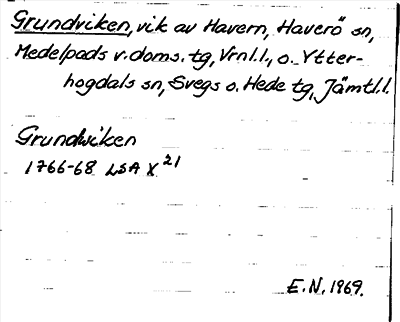 Grundviken, vik av Havern, Haverö sn,
Medelpads v. doms. tg, Vrnl.l., o. Ytter-
hogdals sn, Svegs o. Hede tg, Jämtl.l.
Grundwiken
1766-68 LSA X 21
E.N. 1969.